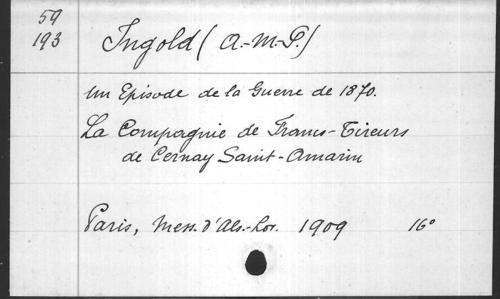 59
193
Ingold (A.-M.-P.)
Un Episode de la Guerre de 1870.
La Compagnie de Francs-Tireurs
de Cernay Saint-Amarin
Paris, Mess. d'Als.-Lor. 1909 16°